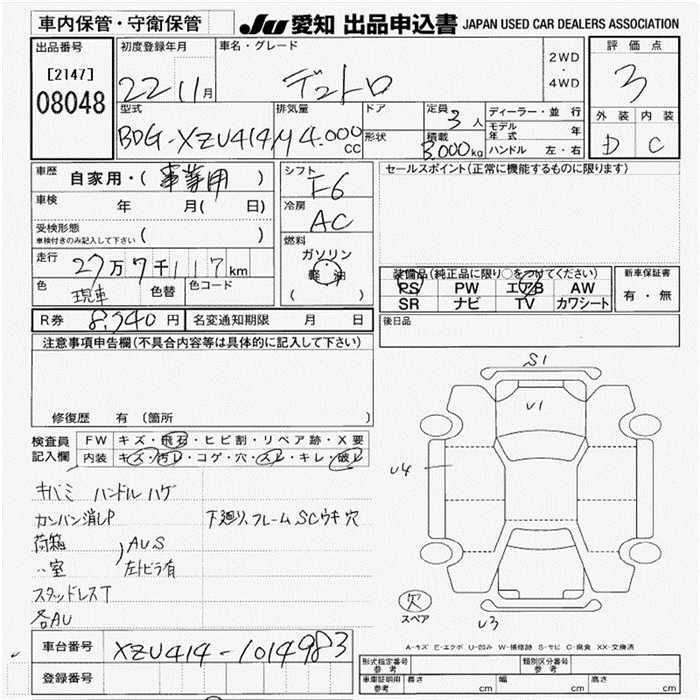 車内保管・守衛保管
JU 愛知 出品申込書 JAPAN USED CAR DEALERS ASSOCIATION
出品番号
[2147]
08048
初度登録年月
22 11月
車名・グレード
デュトロ
2WD
・
4WD
評価点
3
外装 内装
D C
型式
BDG-XZU414M
排気量
4.000 CC
ドア
形状
定員 3人
積載 3.000kg
ディーラー・並行
モデル年式 年
ハンドル 左・右
車歴 自家用・(事業用)
車検 年 月( 日)
受検形態
車検付きのみ記入して下さい ( )
走行 27万7千117km
色 現車 色替 色コード
R券 8,340円 名変通知期限 月 日
シフト
F6
冷房
AC
燃料
ガソリン
軽油
( )
セールスポイント(正常に機能するものに限ります)
装備品(純正品に限り○をつけてください)
PS PW エアB AW
SR ナビ TV カワシート
新車保証書
有・無
後日品
注意事項申告欄(不具合内容等は具体的に記入して下さい)
修復歴 有 (箇所 )
検査員記入欄
FW キズ・飛石・ヒビ割・リペア跡・X要
内装 キズ・汚レ・コゲ・穴・スレ・キレ・破レ
キバミ ハンドルハゲ
カンバン消しP
下廻り、フレームSCウキ穴
荷箱
〃室
AUS
左トビラ有
スタッドレスT
各AU
S1
U1
U4
U3
欠
スペア
A-キズ E-エクボ U-凹み W-補修跡 S-サビ C-腐食 XX-交換済
車台番号 XZU414-1014983
登録番号
型式指定番号
参考
類別区分番号
参考
車庫証明用
参考
長さ cm 幅 cm 高さ cm